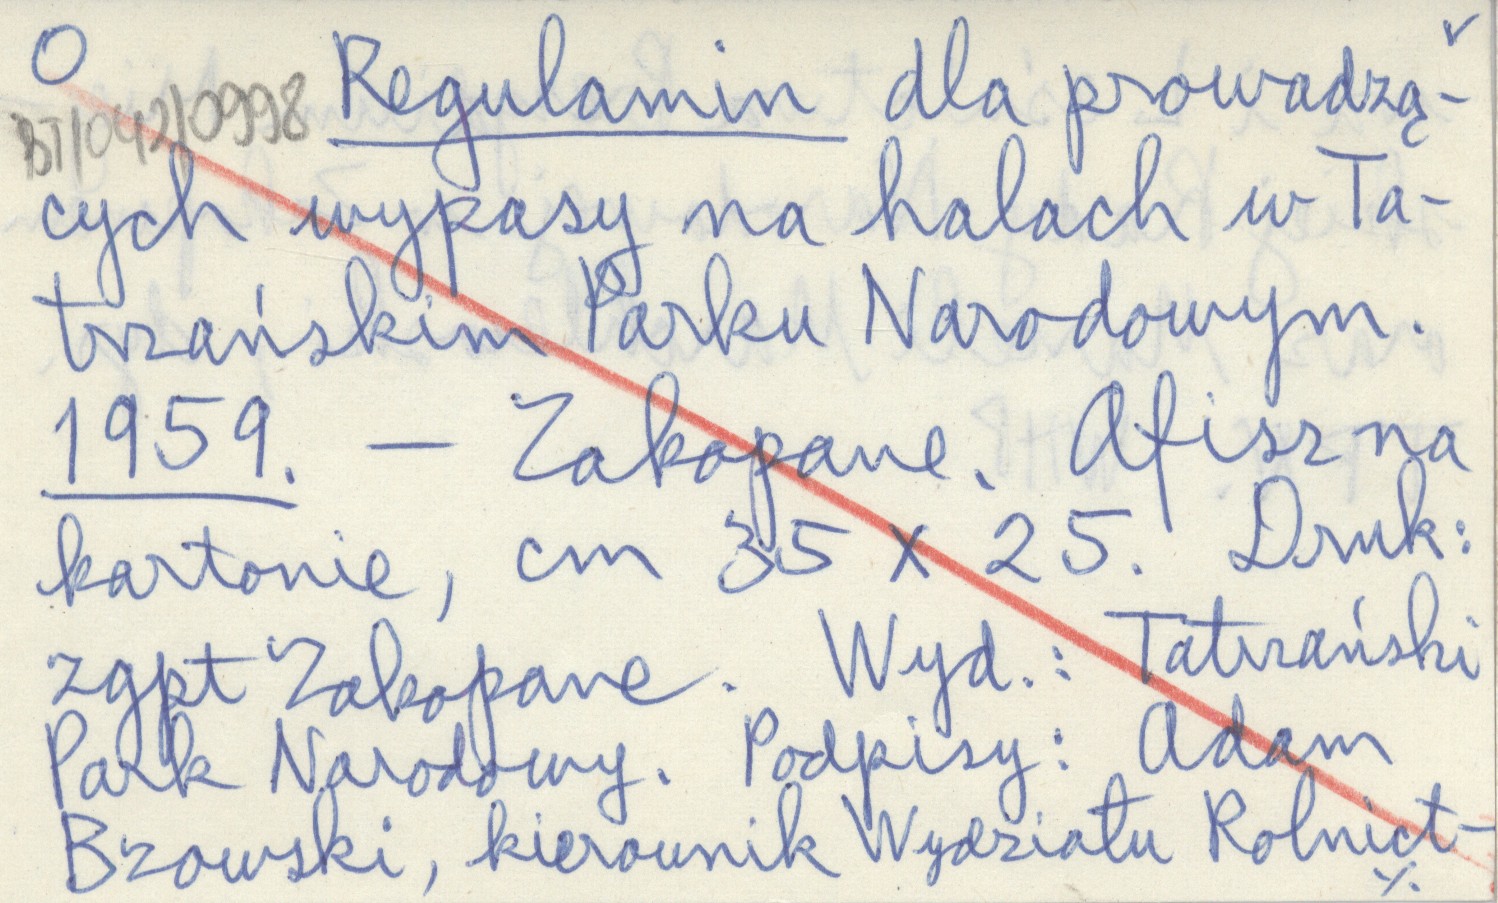 O Regulamin dla prowadzą-
BT/042/0998
cych wypasy na halach w Ta-
trzańskim Parku Narodowym.
1959. — Zakopane. Afisz na
kartonie, cm 35 x 25. Druk:
zgpt Zakopane. Wyd.: Tatrzański
Park Narodowy. Podpisy: Adam
Bzowski, kierownik Wydziału Rolnict-
./.